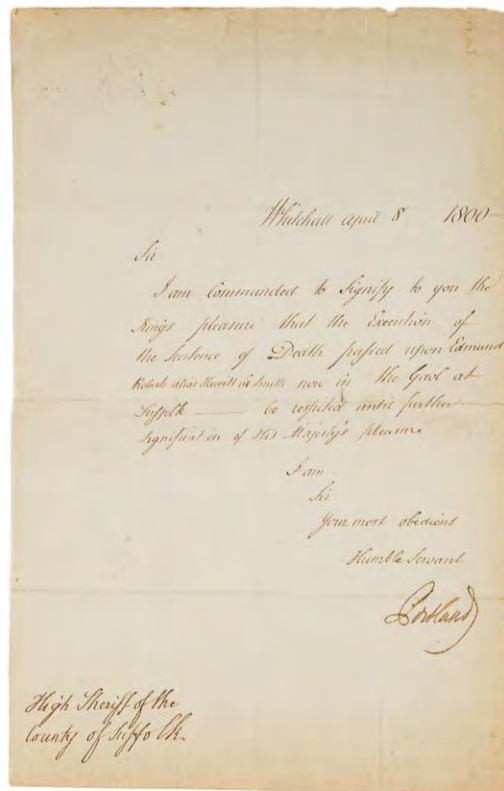 Whitehall April 8 1800
Sir
I am Commanded to Signify to you the
Kings pleasure that the Execution of
the Sentence of Death passed upon Edmund
Roberts alias Hewitt als Smith now in the Gaol at
Suffolk — be respited until further
signification of His Majesty's pleasure
I am
Sir
Your most obedient
Humble Servant
Portland
High Sheriff of the
County of Suffolk